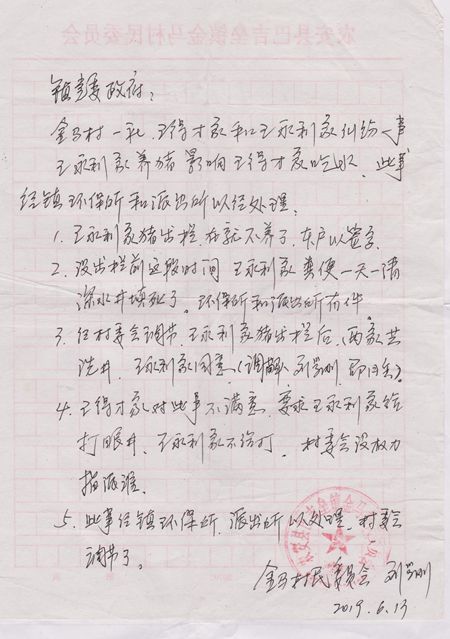 农安县巴吉垒镇金马村民委员会
镇党委政府:
金马村一社,王得才家和王永利家纠纷一事
王永利家养猪影响王得才家吃水,此事
经镇环保所和派出所以经处理.
1. 王永利家猪出栏 存就不养了. 本户以签字.
2. 没出栏前这段时间 王永利家粪便一天一清
深水井填死了. 环保所和派出所有件.
3. 经村委会调节 王永利家猪出栏后,两家共
洗井. 王永利家同意 (调解人 刘 
4. 王得才家对此事不满意, 要求王永利家给
打眼井. 王永利家不给打. 村委会没权力
指派谁.
5. 此事经镇环保所,派出所以处理,村委会
调节了.
金马村民委员会 刘
2019.6.13